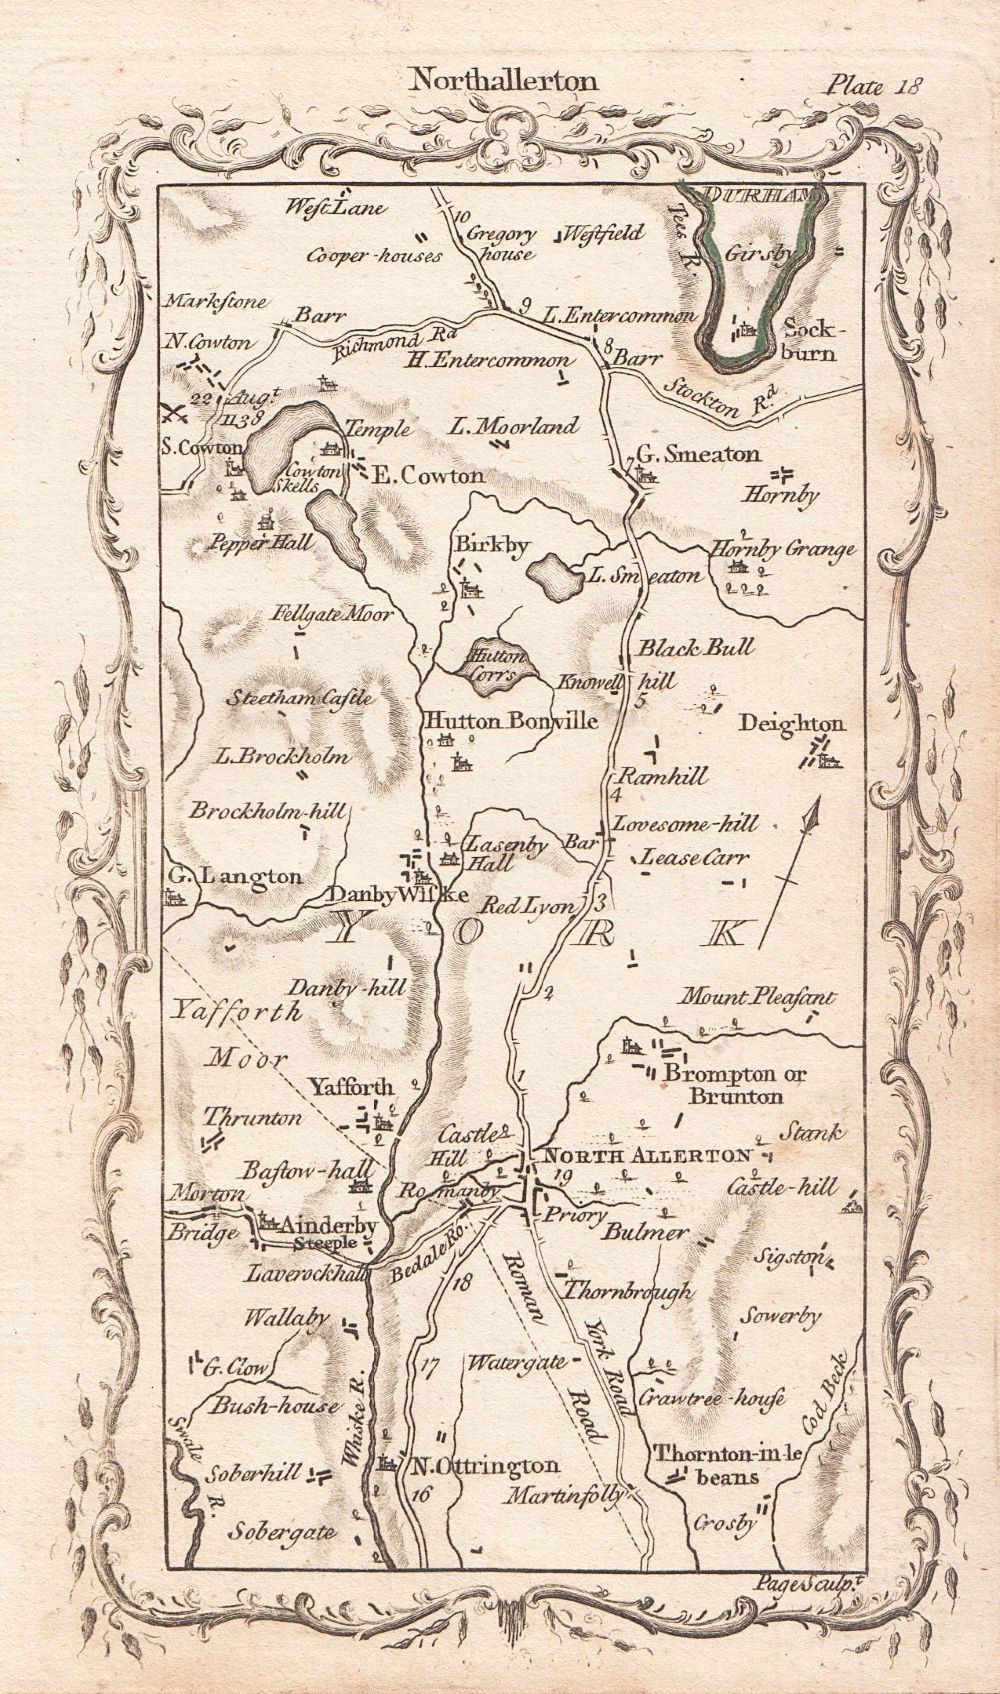 Northallerton
Plate 18
West Lane
DURHAM
Tees R.
10
Gregory
house
Westfield
Cooper-houses
Girsby
Markstone
Barr
9
L. Entercommon
Richmond Rd
N. Cowton
H. Entercommon
8
Barr
Sock-
burn
22 Augt.
1138
Stockton Rd.
Temple
L. Moorland
S. Cowton
7
G. Smeaton
Cowton
Skells
E. Cowton
Hornby
Pepper Hall
Birkby
Hornby Grange
L. Smeaton
Fellgate Moor
Black Bull
Hutton
Corrs
Knowell hill
5
Steetham Castle
Hutton Bonville
Deighton
L. Brockholm
Ramhill
4
Brockholm-hill
Lovesome-hill
Lasenby
Hall
Bar
Lease Carr
G. Langton
Danby Wiske
Red Lyon
3
YORK
Danby-hill
2
Mount Pleasant
Yafforth
Moor
1
Brompton or
Brunton
Yafforth
Thrunton
Castle
Hill
Stank
NORTH ALLERTON
Bastow-hall
19
Castle-hill
Morton
Bridge
Romanby
Priory
Ainderby
Steeple
Bulmer
Bedale Ro.
Sigston
Laverockhall
18
Roman
Road
Thornbrough
Wallaby
Sowerby
York Road
17
Watergate
G. Clow
Bush-house
Crawtree-house
Cod Beck
Whiske R.
Swale
R.
Soberhill
N. Ottrington
Thornton-in-le
beans
16
Martinfolly
Sobergate
Crosby
Page Sculpt.